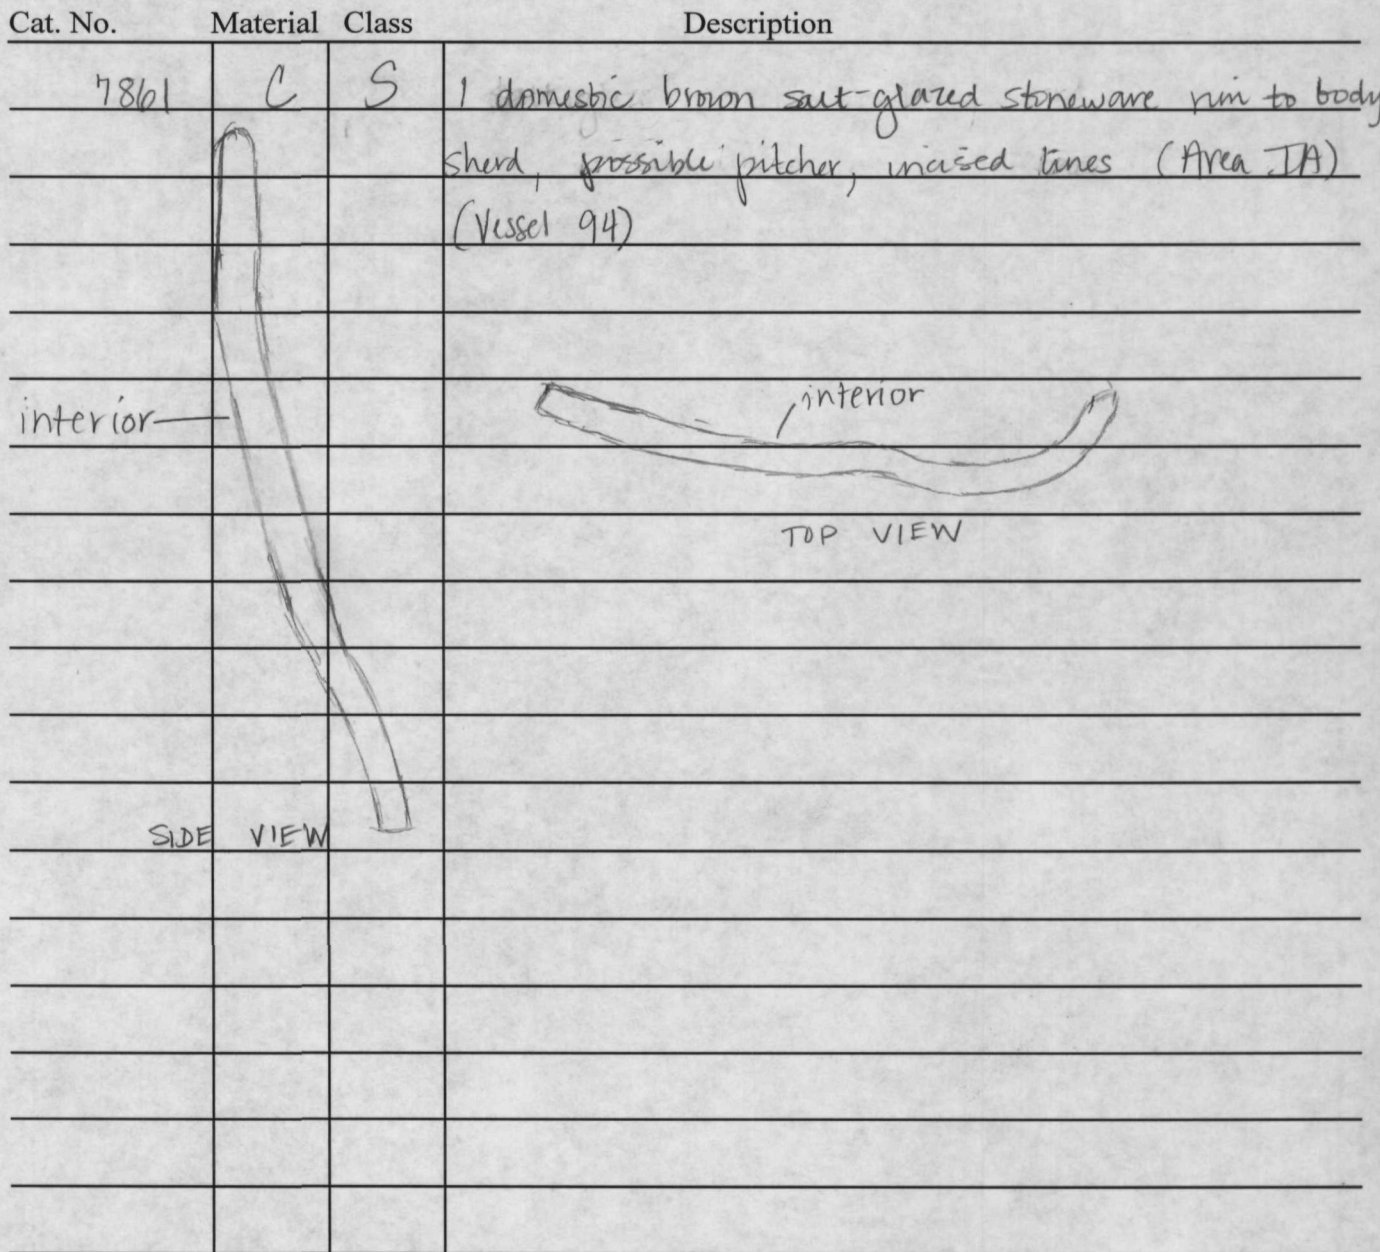 Cat. No. Material Class Description
7861 C S 1 domestic brown salt-glazed stoneware rim to body
sherd, possible pitcher, incised lines (Area IA)
(Vessel 94)
interior
interior
TOP VIEW
SIDE VIEW